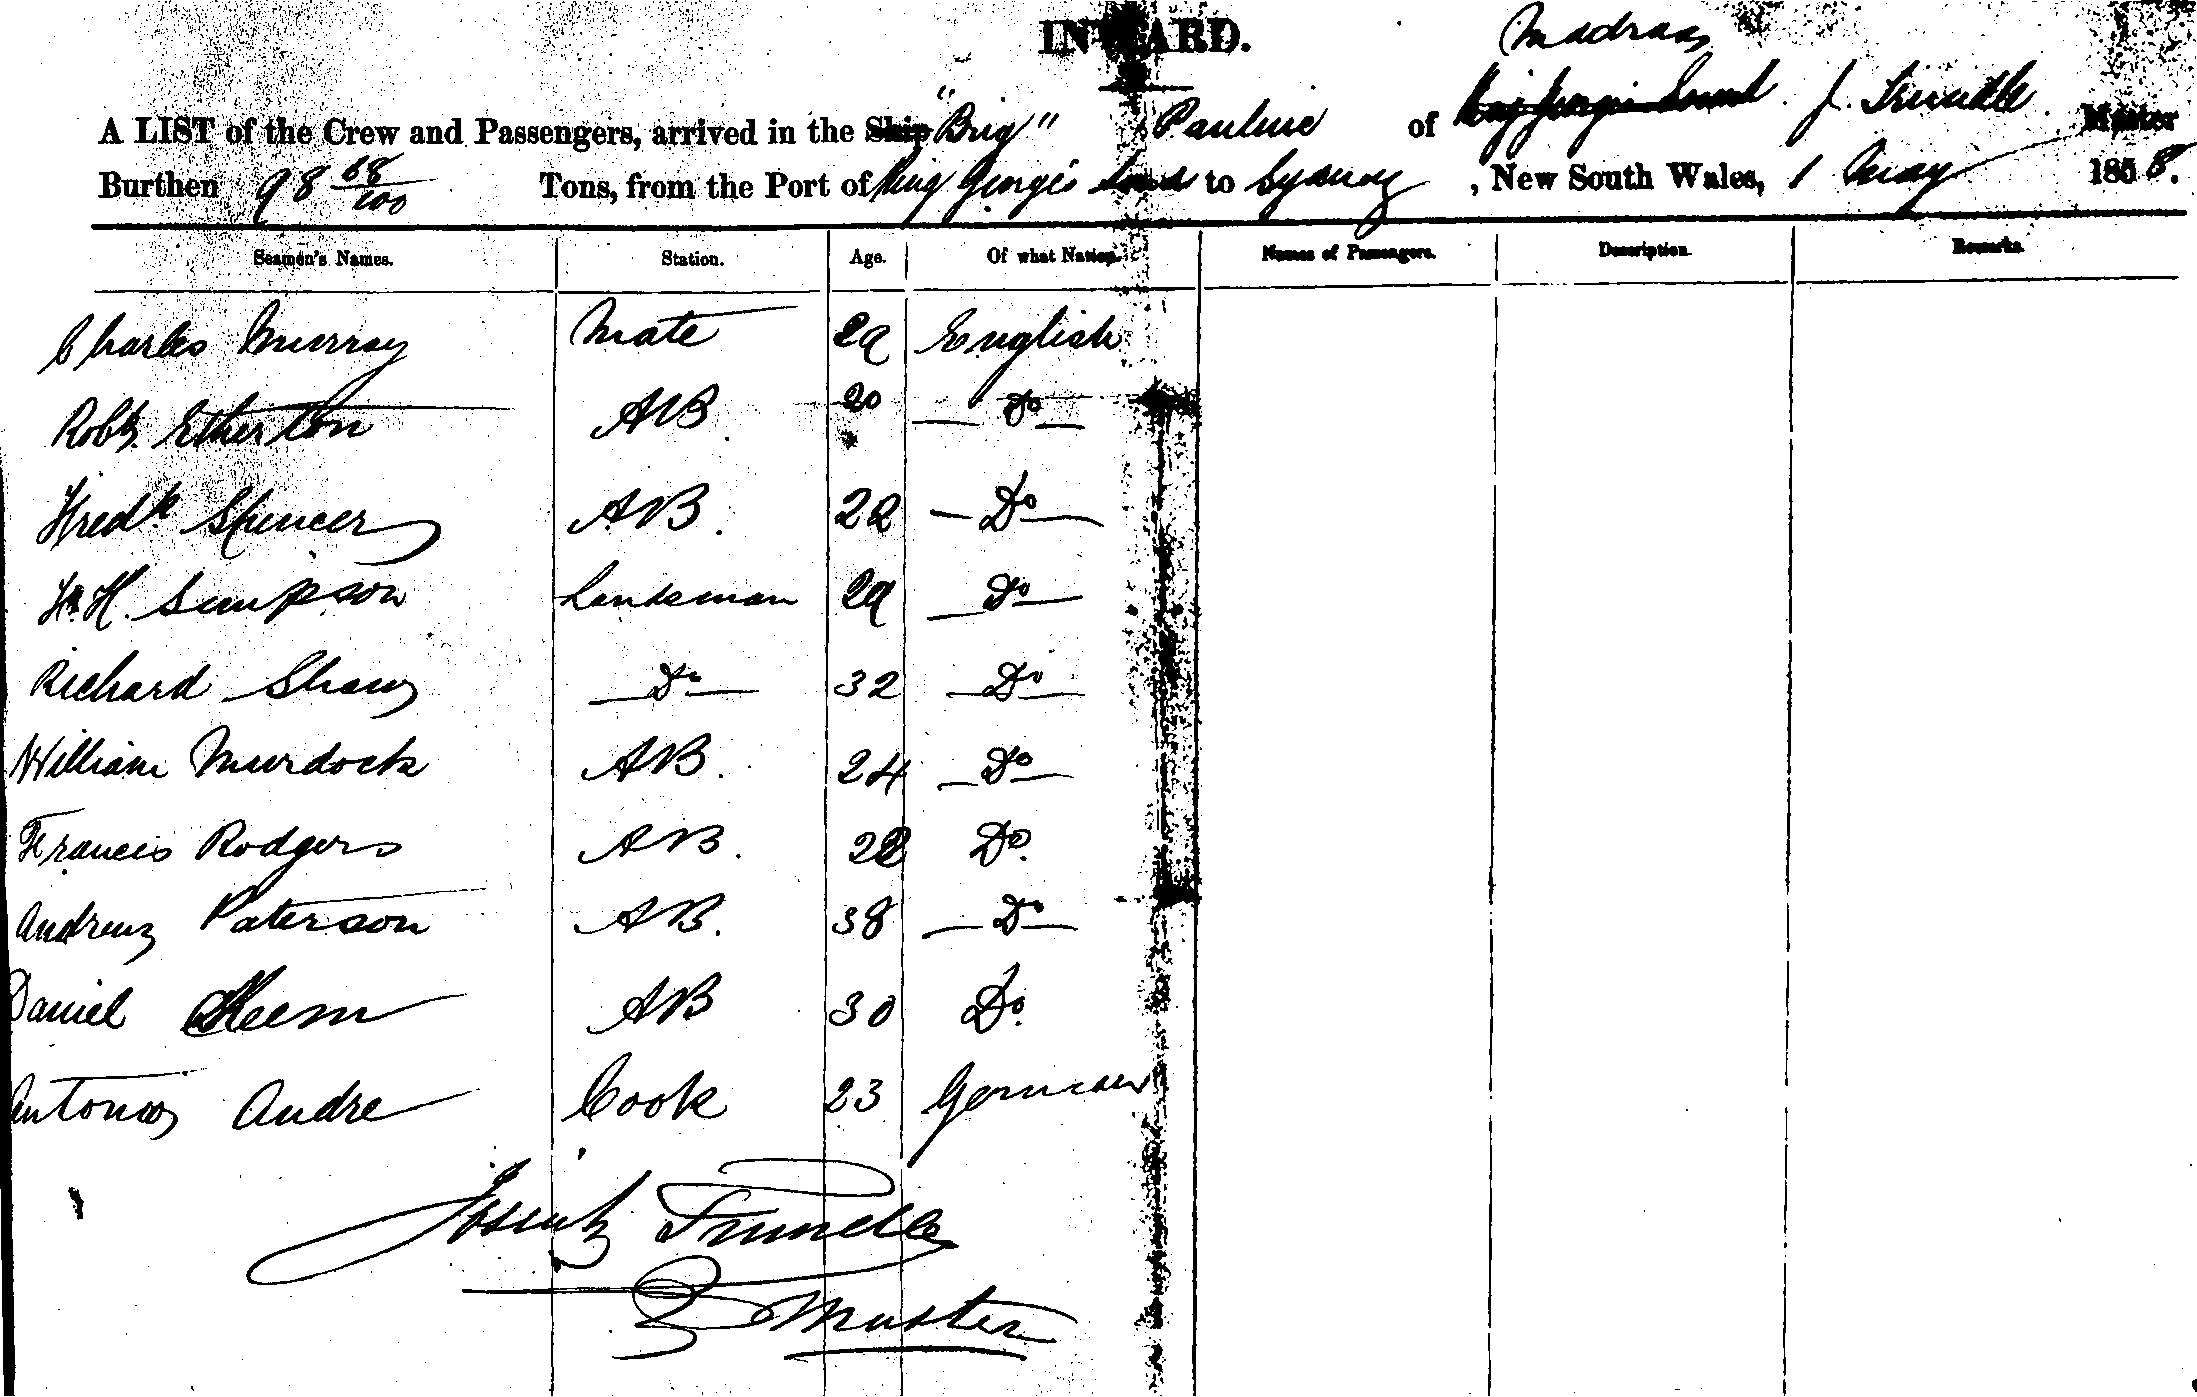 INWARD.
Madras
A LIST of the Crew and Passengers, arrived in the Ship "Brig" Pauline of King Georges Sound J. Trundle Master
Burthen 98 68/100 Tons, from the Port of King George's Sound to Sydney, New South Wales, 1 May 1858.
Seamen's Names. Station. Age. Of what Nation. Names of Passengers. Description. Remarks.
Charles Murray Mate 29 English
Robt. Etherton AB. 20 Do
Fredk Spencer AB. 22 Do
H. Simpson Landsman 29 Do
Richard Shaw Do 32 Do
William Murdock AB. 24 Do
Francis Rodgers AB. 22 Do.
Andrew Paterson AB. 38 Do
Daniel AB 30 Do.
Andre Cook 23 German
Josiah Trundle
Master